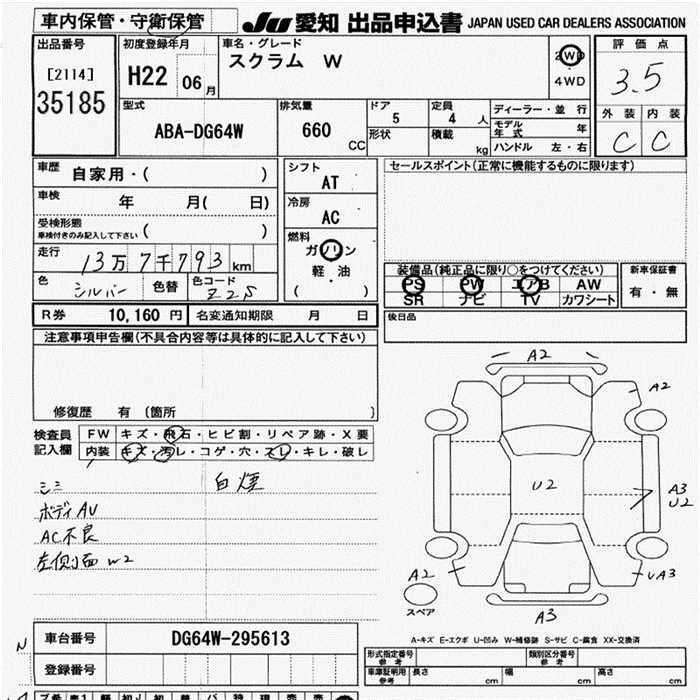 車内保管・守衛保管 JU 愛知 出品申込書 JAPAN USED CAR DEALERS ASSOCIATION
出品番号 初度登録年月 車名・グレード 評価点
[2114] H22 06月 スクラム W 2WD 3.5
35185 4WD
外装 内装
型式 排気量 ドア 定員 ディーラー・並行 C C
ABA-DG64W 660 CC 5 4人 モデル年式 年
形状 積載 kg ハンドル 左・右
車歴 自家用・( ) シフト AT セールスポイント(正常に機能するものに限ります)
車検 年 月( 日) 冷房 AC
受検形態 ( )
車検付きのみ記入して下さい
燃料 ガソリン
走行 13万7千793km 軽・油
( )
装備品(純正品に限り○をつけてください) 新車保証書
色 シルバー 色替 色コード Z2S PS PW エアB AW 有・無
SR ナビ TV カワシート
R券 10,160円 名変通知期限 月 日 後日品
注意事項申告欄(不具合内容等は具体的に記入して下さい)
A2
A2
修復歴 有〔箇所 〕
検査員記入欄 FW キズ・飛石・ヒビ割・リペア跡・X要
内装 キズ・汚レ・コゲ・穴・スレ・キレ・破レ
シミ 白煙
U2 A3
U2
ボディAU
AC不良
左側面W2
A2 UA3
スペア A3
A-キズ E-エクボ U-凹み W-補修跡 S-サビ C-腐食 XX-交換済
車台番号 DG64W-295613
登録番号
形式指定番号 参考 類別区分番号 参考
車庫証明用 参考 長さ cm 幅 cm 高さ cm